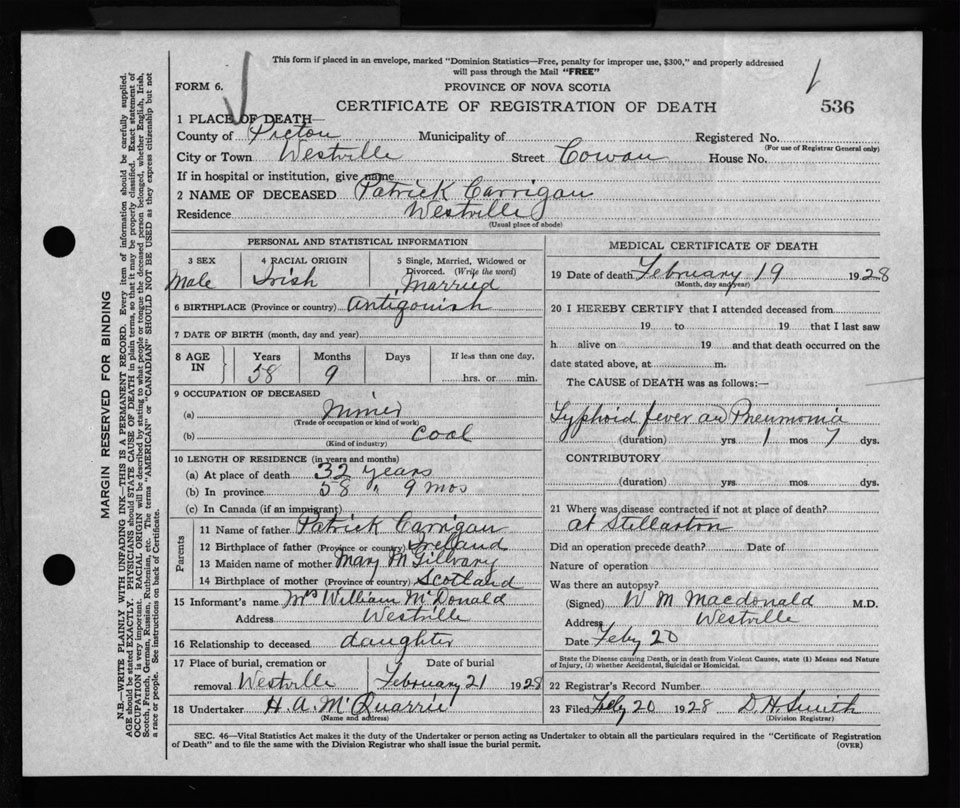 This form if placed in an envelope, marked "Dominion Statistics—Free, penalty for improper use, $300," and properly addressed
will pass through the Mail "FREE"
FORM 6.
PROVINCE OF NOVA SCOTIA
CERTIFICATE OF REGISTRATION OF DEATH
536
1 PLACE OF DEATH—
County of Pictou Municipality of Registered No.
(For use of Registrar General only)
City or Town Westville Street Cowan House No.
If in hospital or institution, give name
2 NAME OF DECEASED Patrick Carrigan
Residence Westville
(Usual place of abode)
PERSONAL AND STATISTICAL INFORMATION
3 SEX
Male
4 RACIAL ORIGIN
Irish
5 Single, Married, Widowed or
Divorced. (Write the word)
Married
6 BIRTHPLACE (Province or country) Antigonish
7 DATE OF BIRTH (month, day and year)
8 AGE IN
Years Months Days If less than one day,
58 9 hrs. or min.
9 OCCUPATION OF DECEASED
(a) Miner
(Trade or occupation or kind of work)
(b) coal
(Kind of industry)
10 LENGTH OF RESIDENCE (in years and months)
(a) At place of death 32 years
(b) In province 58 " 9 mos
(c) In Canada (if an immigrant)
Parents
11 Name of father Patrick Carrigan
12 Birthplace of father (Province or country) Ireland
13 Maiden name of mother Mary McGillvary
14 Birthplace of mother (Province or country) Scotland
15 Informant's name Mrs William McDonald
Address Westville
16 Relationship to deceased daughter
17 Place of burial, cremation or
removal Westville
Date of burial
February 21 1928
18 Undertaker H. A. McQuarrie
(Name and address)
MEDICAL CERTIFICATE OF DEATH
19 Date of death February 19 1928
(Month, day and year)
20 I HEREBY CERTIFY that I attended deceased from
19 to 19 that I last saw
h alive on 19 and that death occurred on the
date stated above, at m.
The CAUSE of DEATH was as follows:—
Typhoid fever an Pneumonia
(duration) yrs 1 mos 7 dys.
CONTRIBUTORY
(duration) yrs. mos. dys.
21 Where was disease contracted if not at place of death?
at Stellarton
Did an operation precede death? Date of
Nature of operation
Was there an autopsy?
(Signed) W M Macdonald M.D.
Address Westville
Date Feby 20
State the Disease causing Death, or in death from Violent Causes, state (1) Means and Nature
of Injury, (2) whether Accidental, Suicidal or Homicidal.
22 Registrar's Record Number
23 Filed Feby 20 1928 D H Smith
(Division Registrar)
SEC. 46—Vital Statistics Act makes it the duty of the Undertaker or person acting as Undertaker to obtain all the particulars required in the "Certificate of Registration
of Death" and to file the same with the Division Registrar who shall issue the burial permit.
(OVER)
MARGIN RESERVED FOR BINDING
N.B.—WRITE PLAINLY WITH UNFADING INK—THIS IS A PERMANENT RECORD. Every item of information should be carefully supplied.
AGE should be stated EXACTLY. PHYSICIANS should STATE CAUSE OF DEATH in plain terms, so that it may be properly classified. Exact statement of
OCCUPATION is very important. RACIAL ORIGIN will be described by stating to what people or tongue the deceased person belonged, whether English, Irish,
Scotch, French, German, Russian, Ruthenian, etc. The terms "AMERICAN" or "CANADIAN" SHOULD NOT BE USED as they express citizenship but not
a race or people. See instructions on back of Certificate.